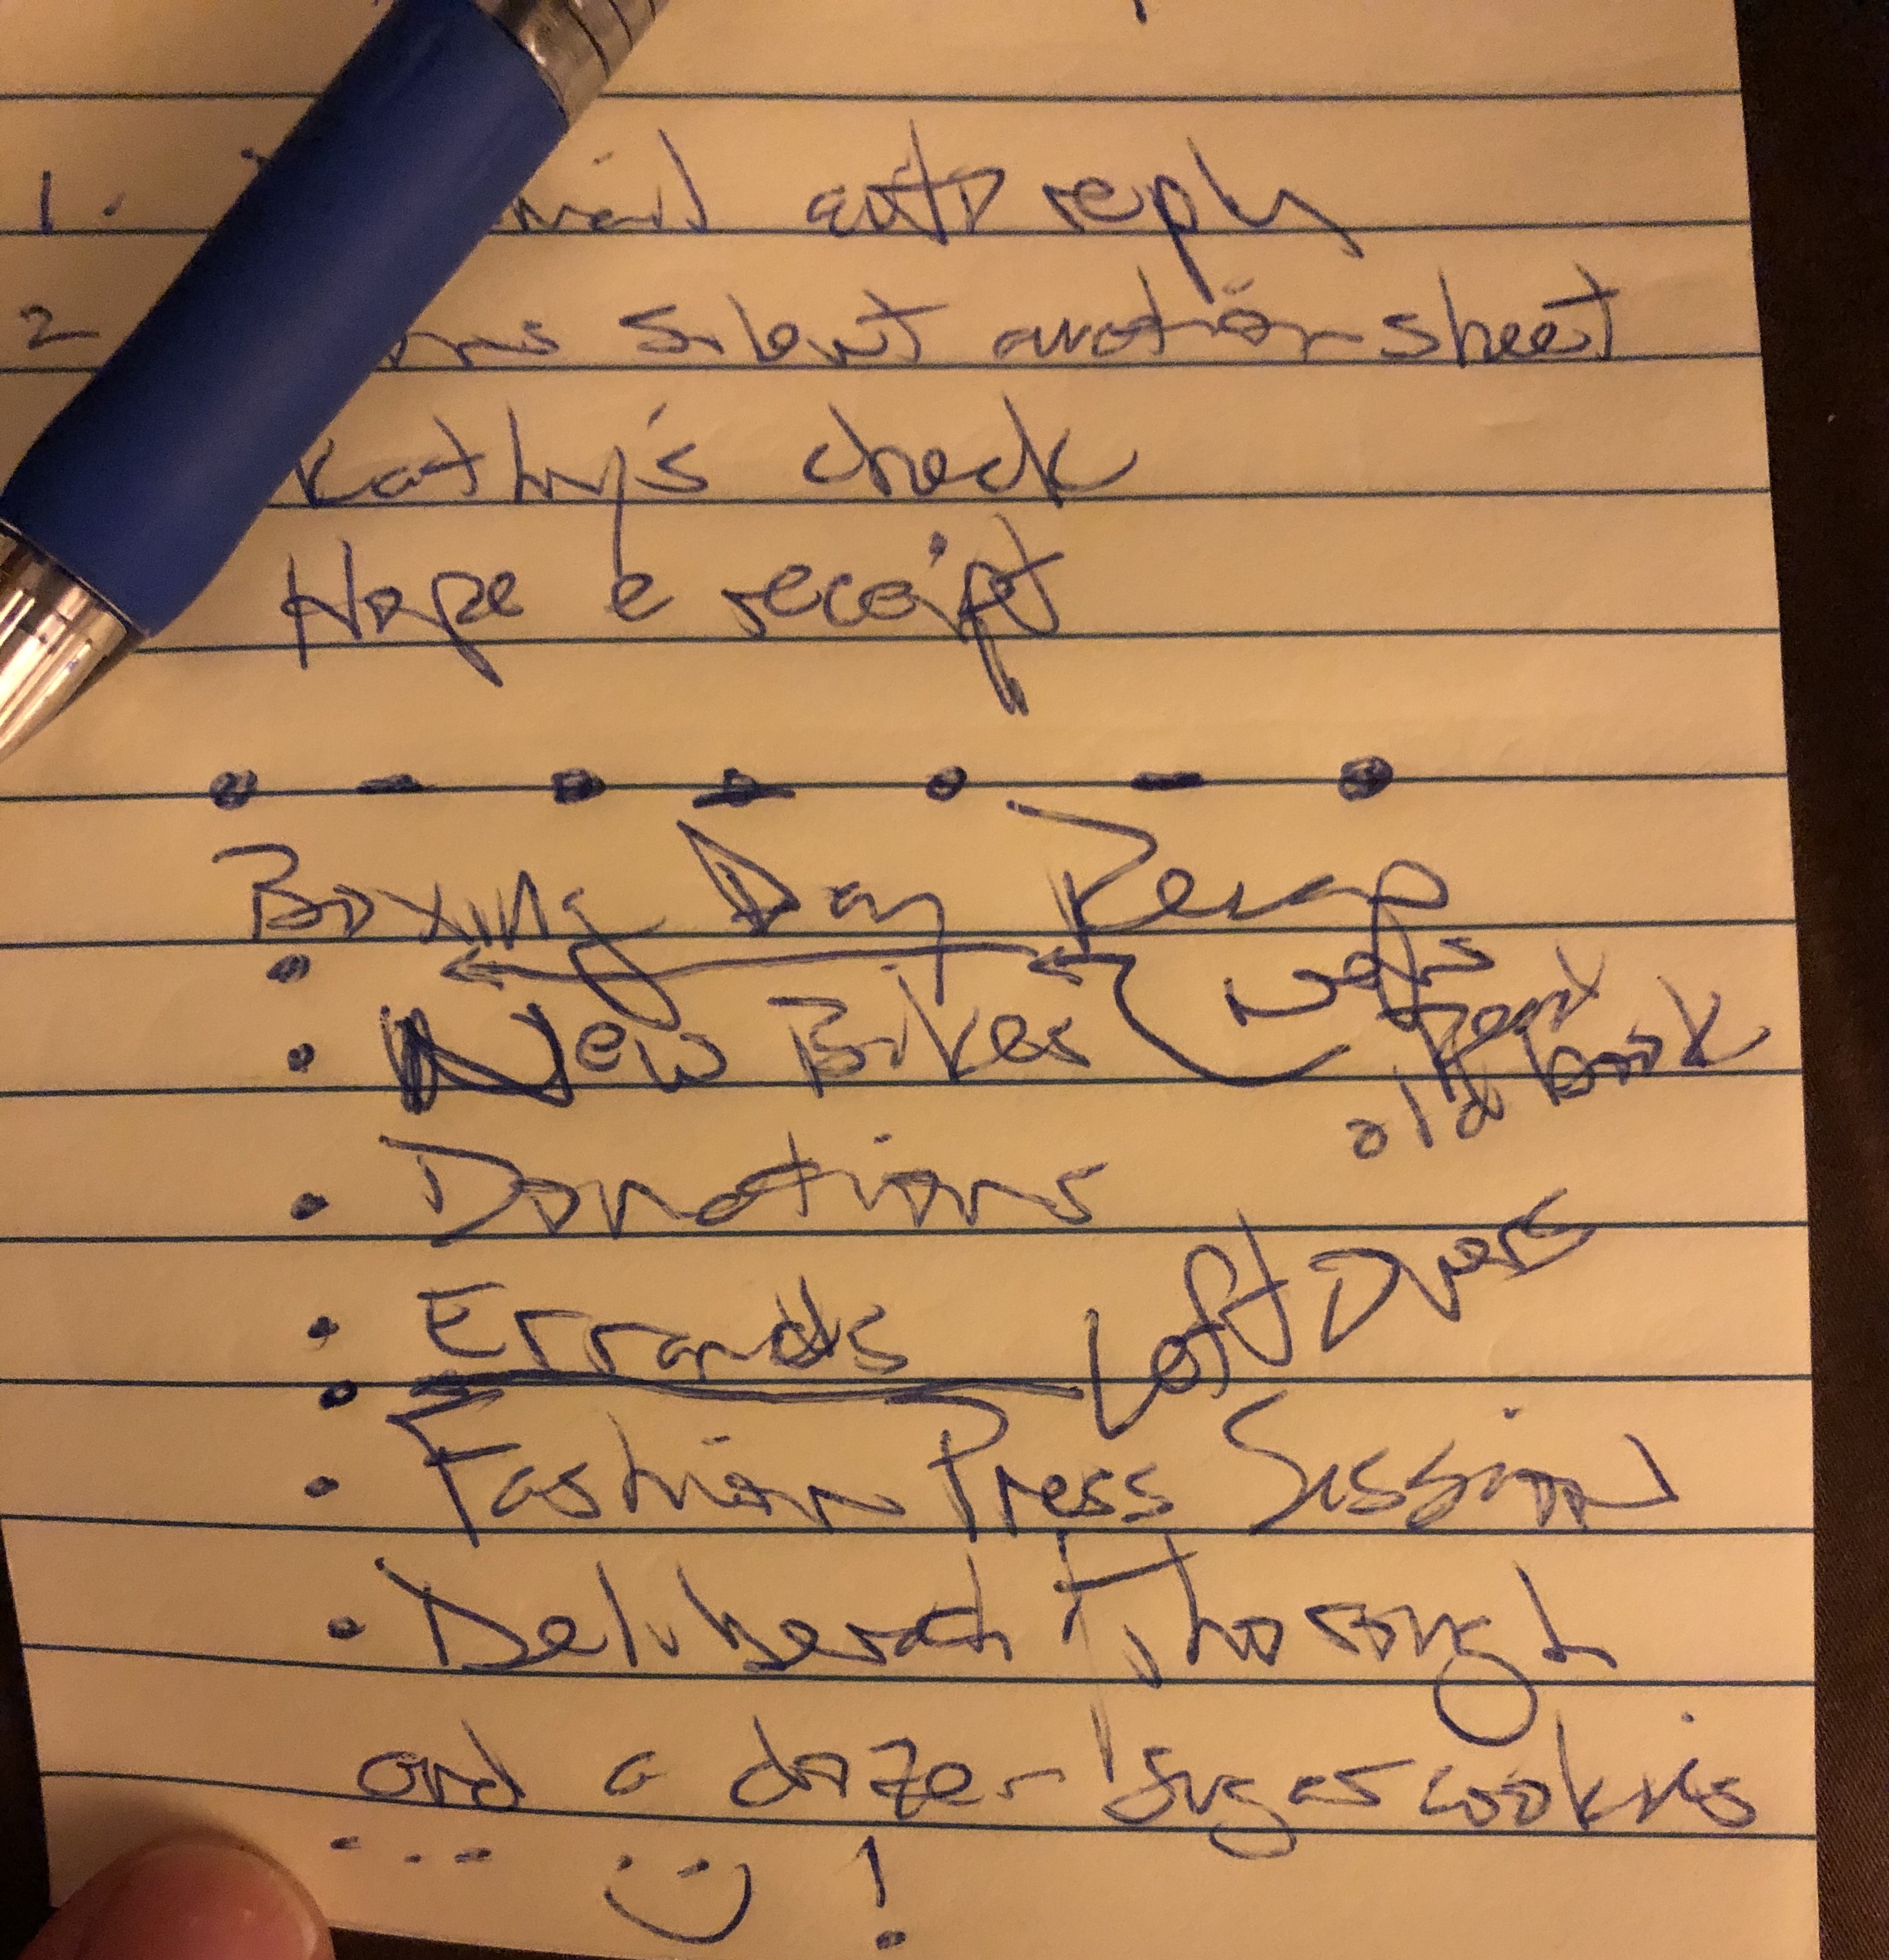 1. mail auto reply
2 silent auction sheet
Kathy's check
Hope e receipt
Boxing Day Recap
• 
• New Bikes
old book
• Donations
• Errands
• Left overs
• Fashion Press Session
• Deliberate Thorough
and a dozen sugar cookies
... :) !